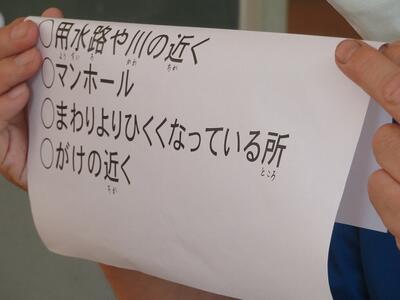 ○用水路や川の近く
○マンホール
○まわりよりひくくなっている所
○がけの近く